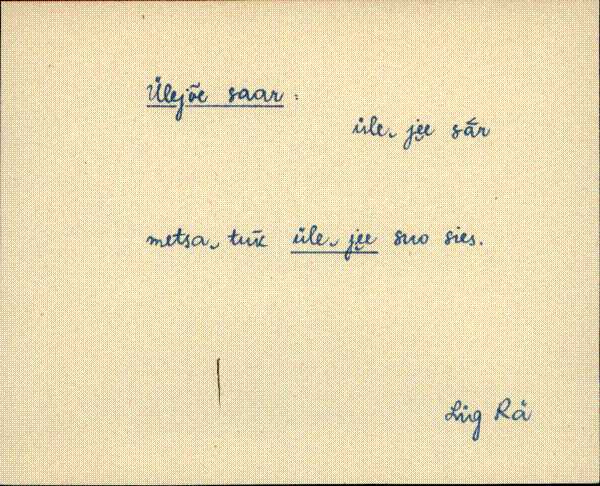 Ülejõe saar:
üle‿je̮e sār
metsa‿tuk̄ üle‿je̮e suo sies.
Lüg Rä